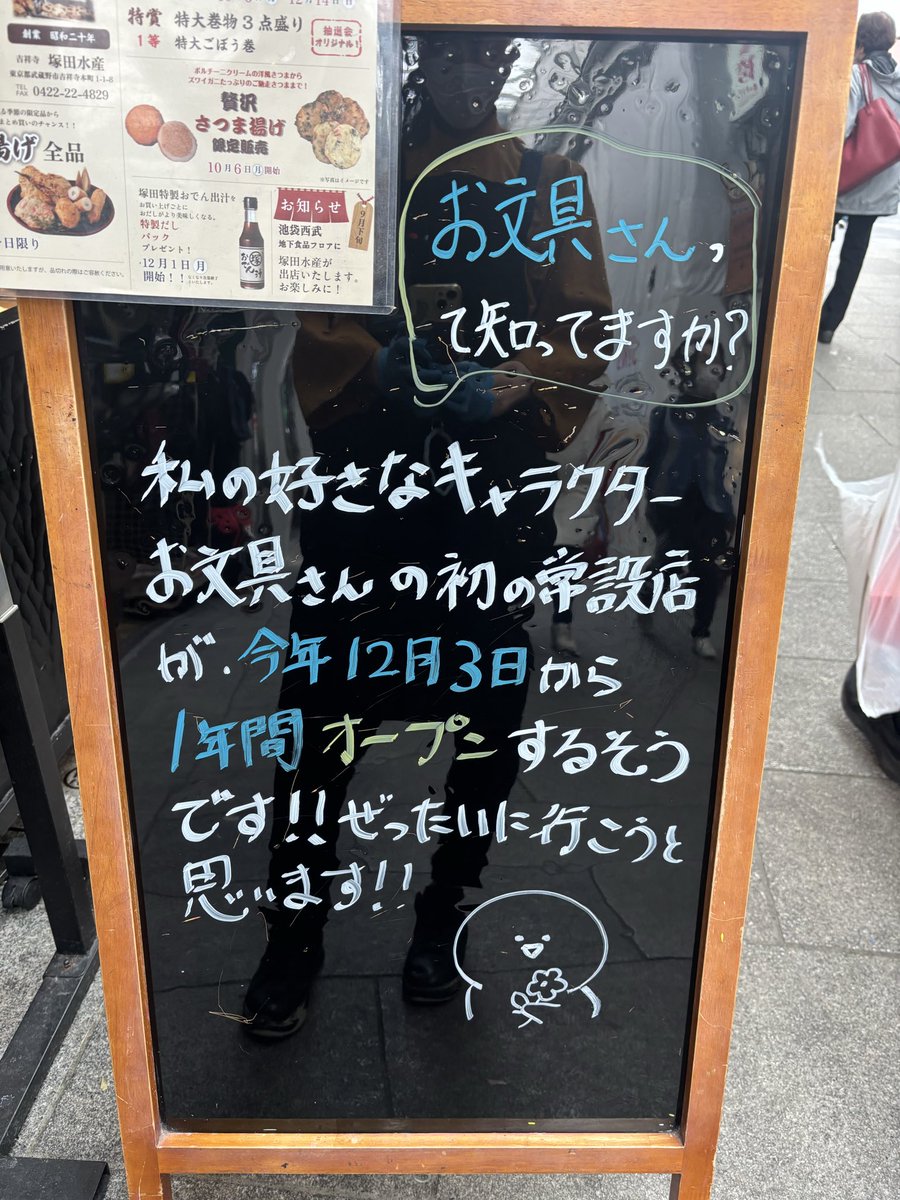 特賞 特大巻物3点盛り
1等 特大ごぼう巻
抽選会
オリジナル!
創業 昭和二十年
吉祥寺 塚田水産
東京都武蔵野市吉祥寺本町1-1-8
TEL
FAX 0422-22-4829
る季節の限定品から
まとめ買いのチャンス!!
揚げ 全品
日限り
ポルチーニクリームの洋風さつまから
ズワイガニたっぷりのご馳走さつままで!
贅沢
さつま揚げ
限定販売
10月6日(月)開始
※写真はイメージです
塚田特製おでん出汁を
お買い上げごとに
おだしがより美味しくなる。
特製だし
パック
プレゼント!
12月1日(月)
開始!!
お知らせ
9月下旬
池袋西武
地下食品フロアに
塚田水産が
出店いたします。
お楽しみに!
お文具さんっ
て知ってますか?
私の好きなキャラクター
お文具さんの初の常設店
が、今年12月3日から
1年間オープンするそう
です!!ぜったいに行こうと
思います!!